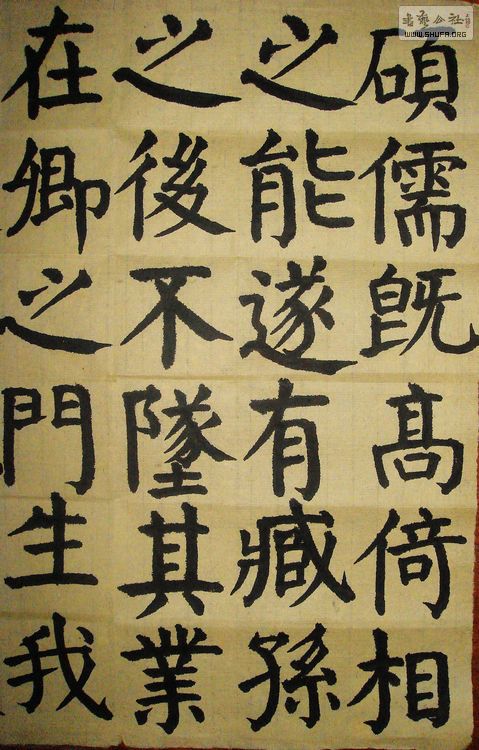 碩儒既高倚相
之能遂有臧孫
之後不墜其業
在卿之門生我
書藝公社
WWW.SHUFA.ORG